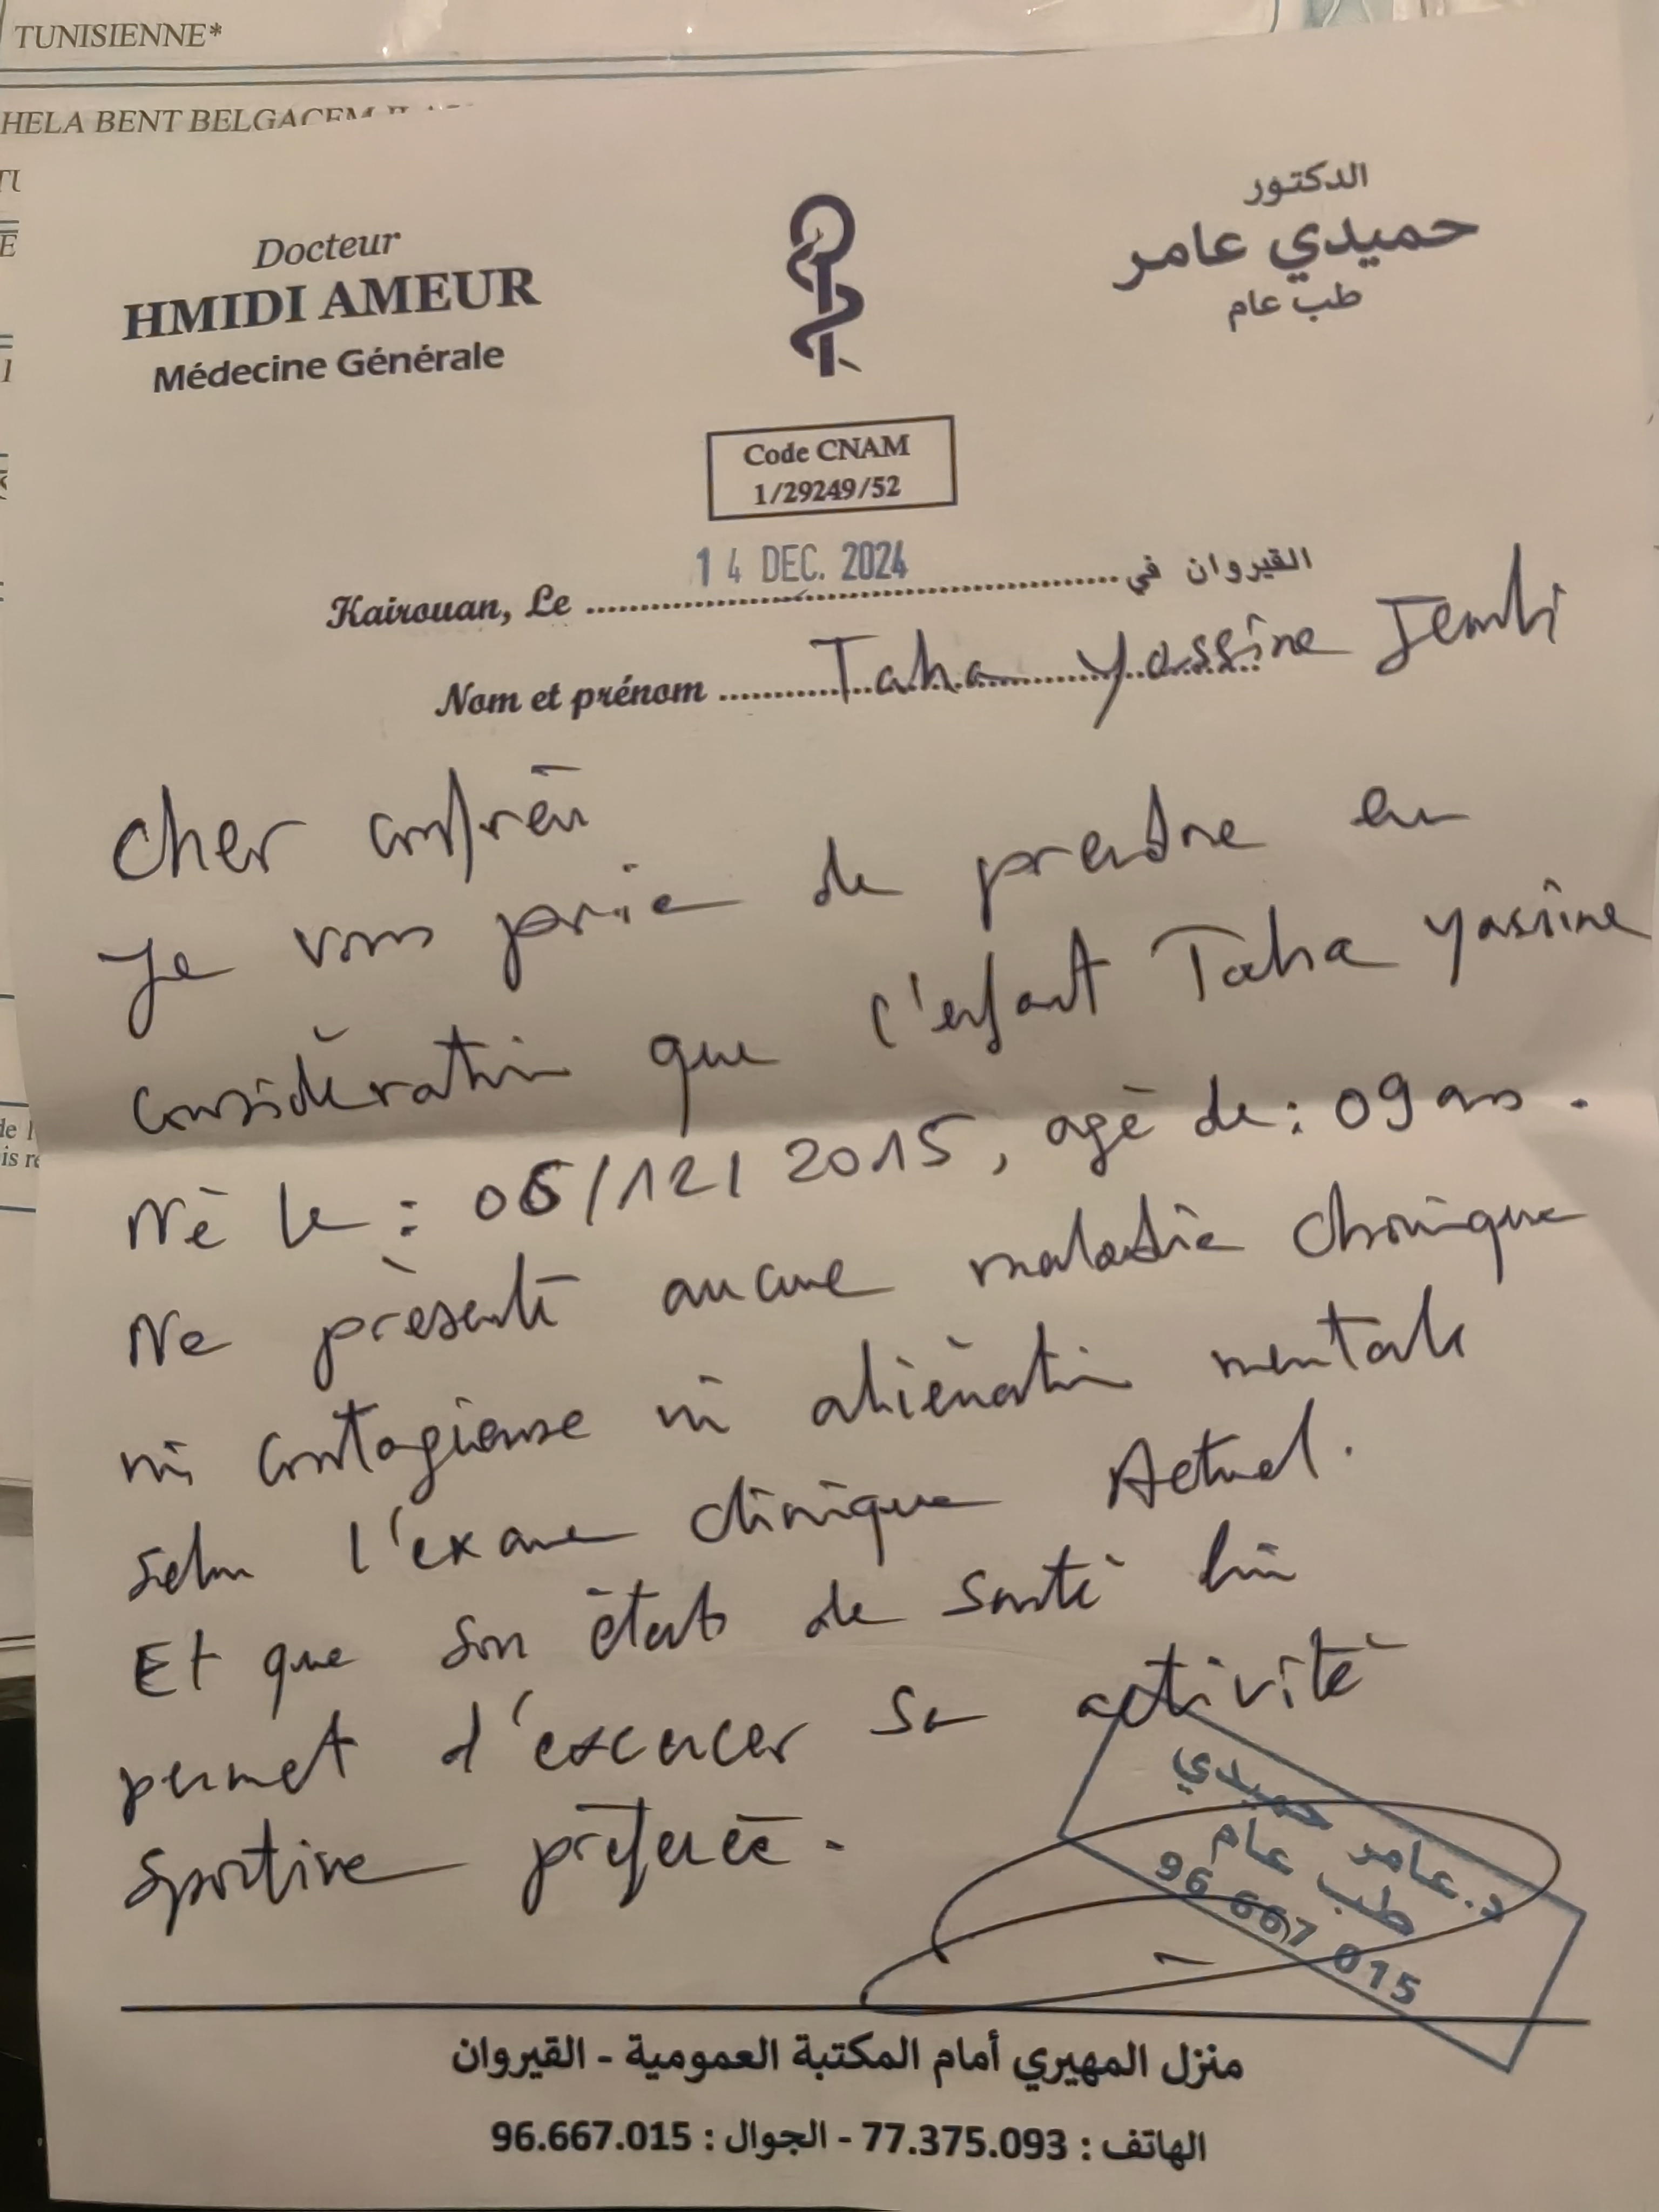 TUNISIENNE*
HELA BENT BELGACEM
Docteur
HMIDI AMEUR
Médecine Générale
الدكتور
حميدي عامر
طب عام
Code CNAM
1/29249/52
14 DEC. 2024
Kairouan, Le ........................ القيروان في
Nom et prénom ........ Taha Yassine Jembi
Cher confrère
Je vous prie de prendre en
considération que l'enfant Taha Yassine
Né le : 06/12/2015, agé de : 09 ans.
Ne présente aucune maladie chronique
ni contagieuse ni aliénation mentale
selon l'examen clinique Actuel.
Et que son état de santé lui
permet d'exercer sa activité
sportive préférée.
د.عامر حميدي
طب عام
96 667 015
منزل المهيري أمام المكتبة العمومية - القيروان
الهاتف : 77.375.093 - الجوال : 96.667.015